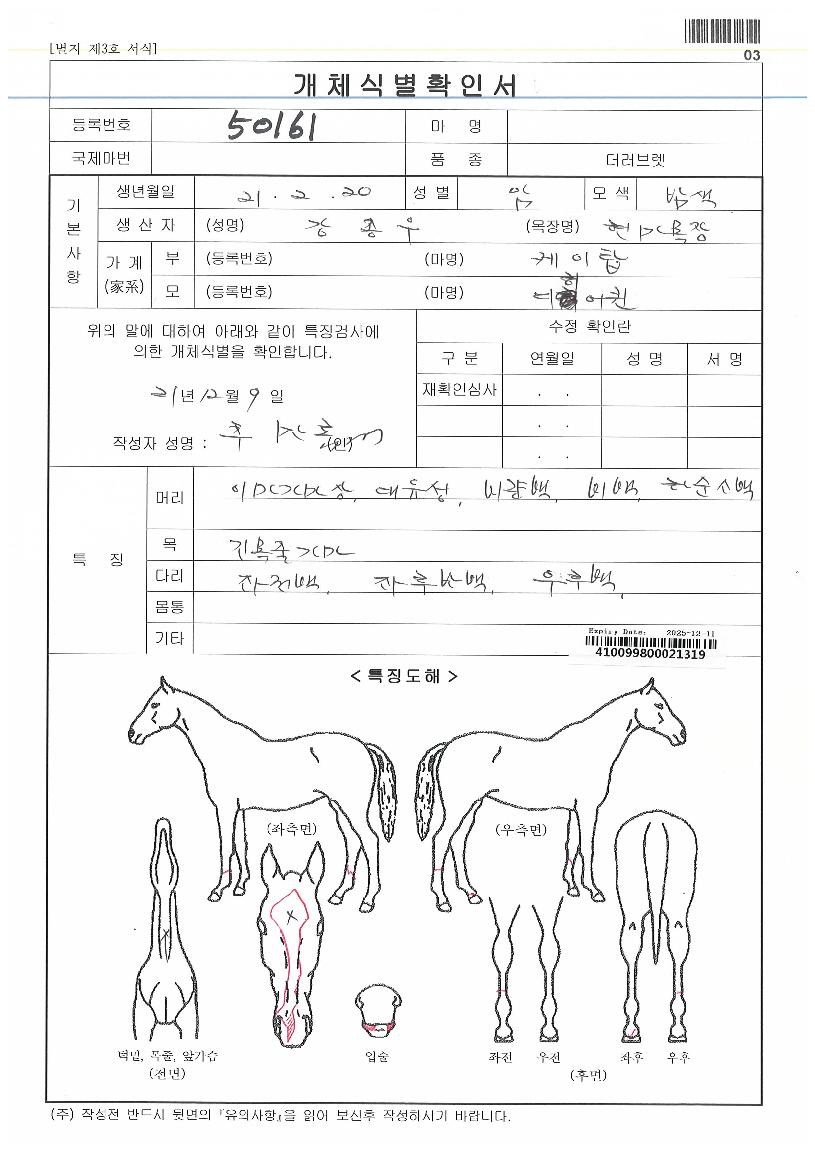 [별지 제3호 서식]
03
개체식별확인서
등록번호 50161 마 명
국제마번 품 종 더러브렛
기본사항
생년월일 21 . 2 . 20 성 별 암 모 색 밤색
생 산 자 (성명) 강 종 우 (목장명)
가 계 (家系) 부 (등록번호) (마명) 케이탑
모 (등록번호) (마명)
위의 말에 대하여 아래와 같이 특징검사에
의한 개체식별을 확인합니다.
21년 12월 9일
작성자 성명 :
수정 확인란
구 분 연월일 성 명 서 명
재확인심사 . .
. .
. .
특 징
머리 대유성, 비량백, 비백, 하순소백
목
다리 좌전백, 좌후소백, 우후백,
몸통
기타
Expiry Date: 2025-12-11
410099800021319
< 특징도해 >
(좌측면) (우측면)
턱밑, 목줄, 앞가슴 입술 좌전 우전 좌후 우후
(전면) (후면)
(주) 작성전 반드시 뒷면의 『유의사항』을 읽어 보신후 작성하시기 바랍니다.